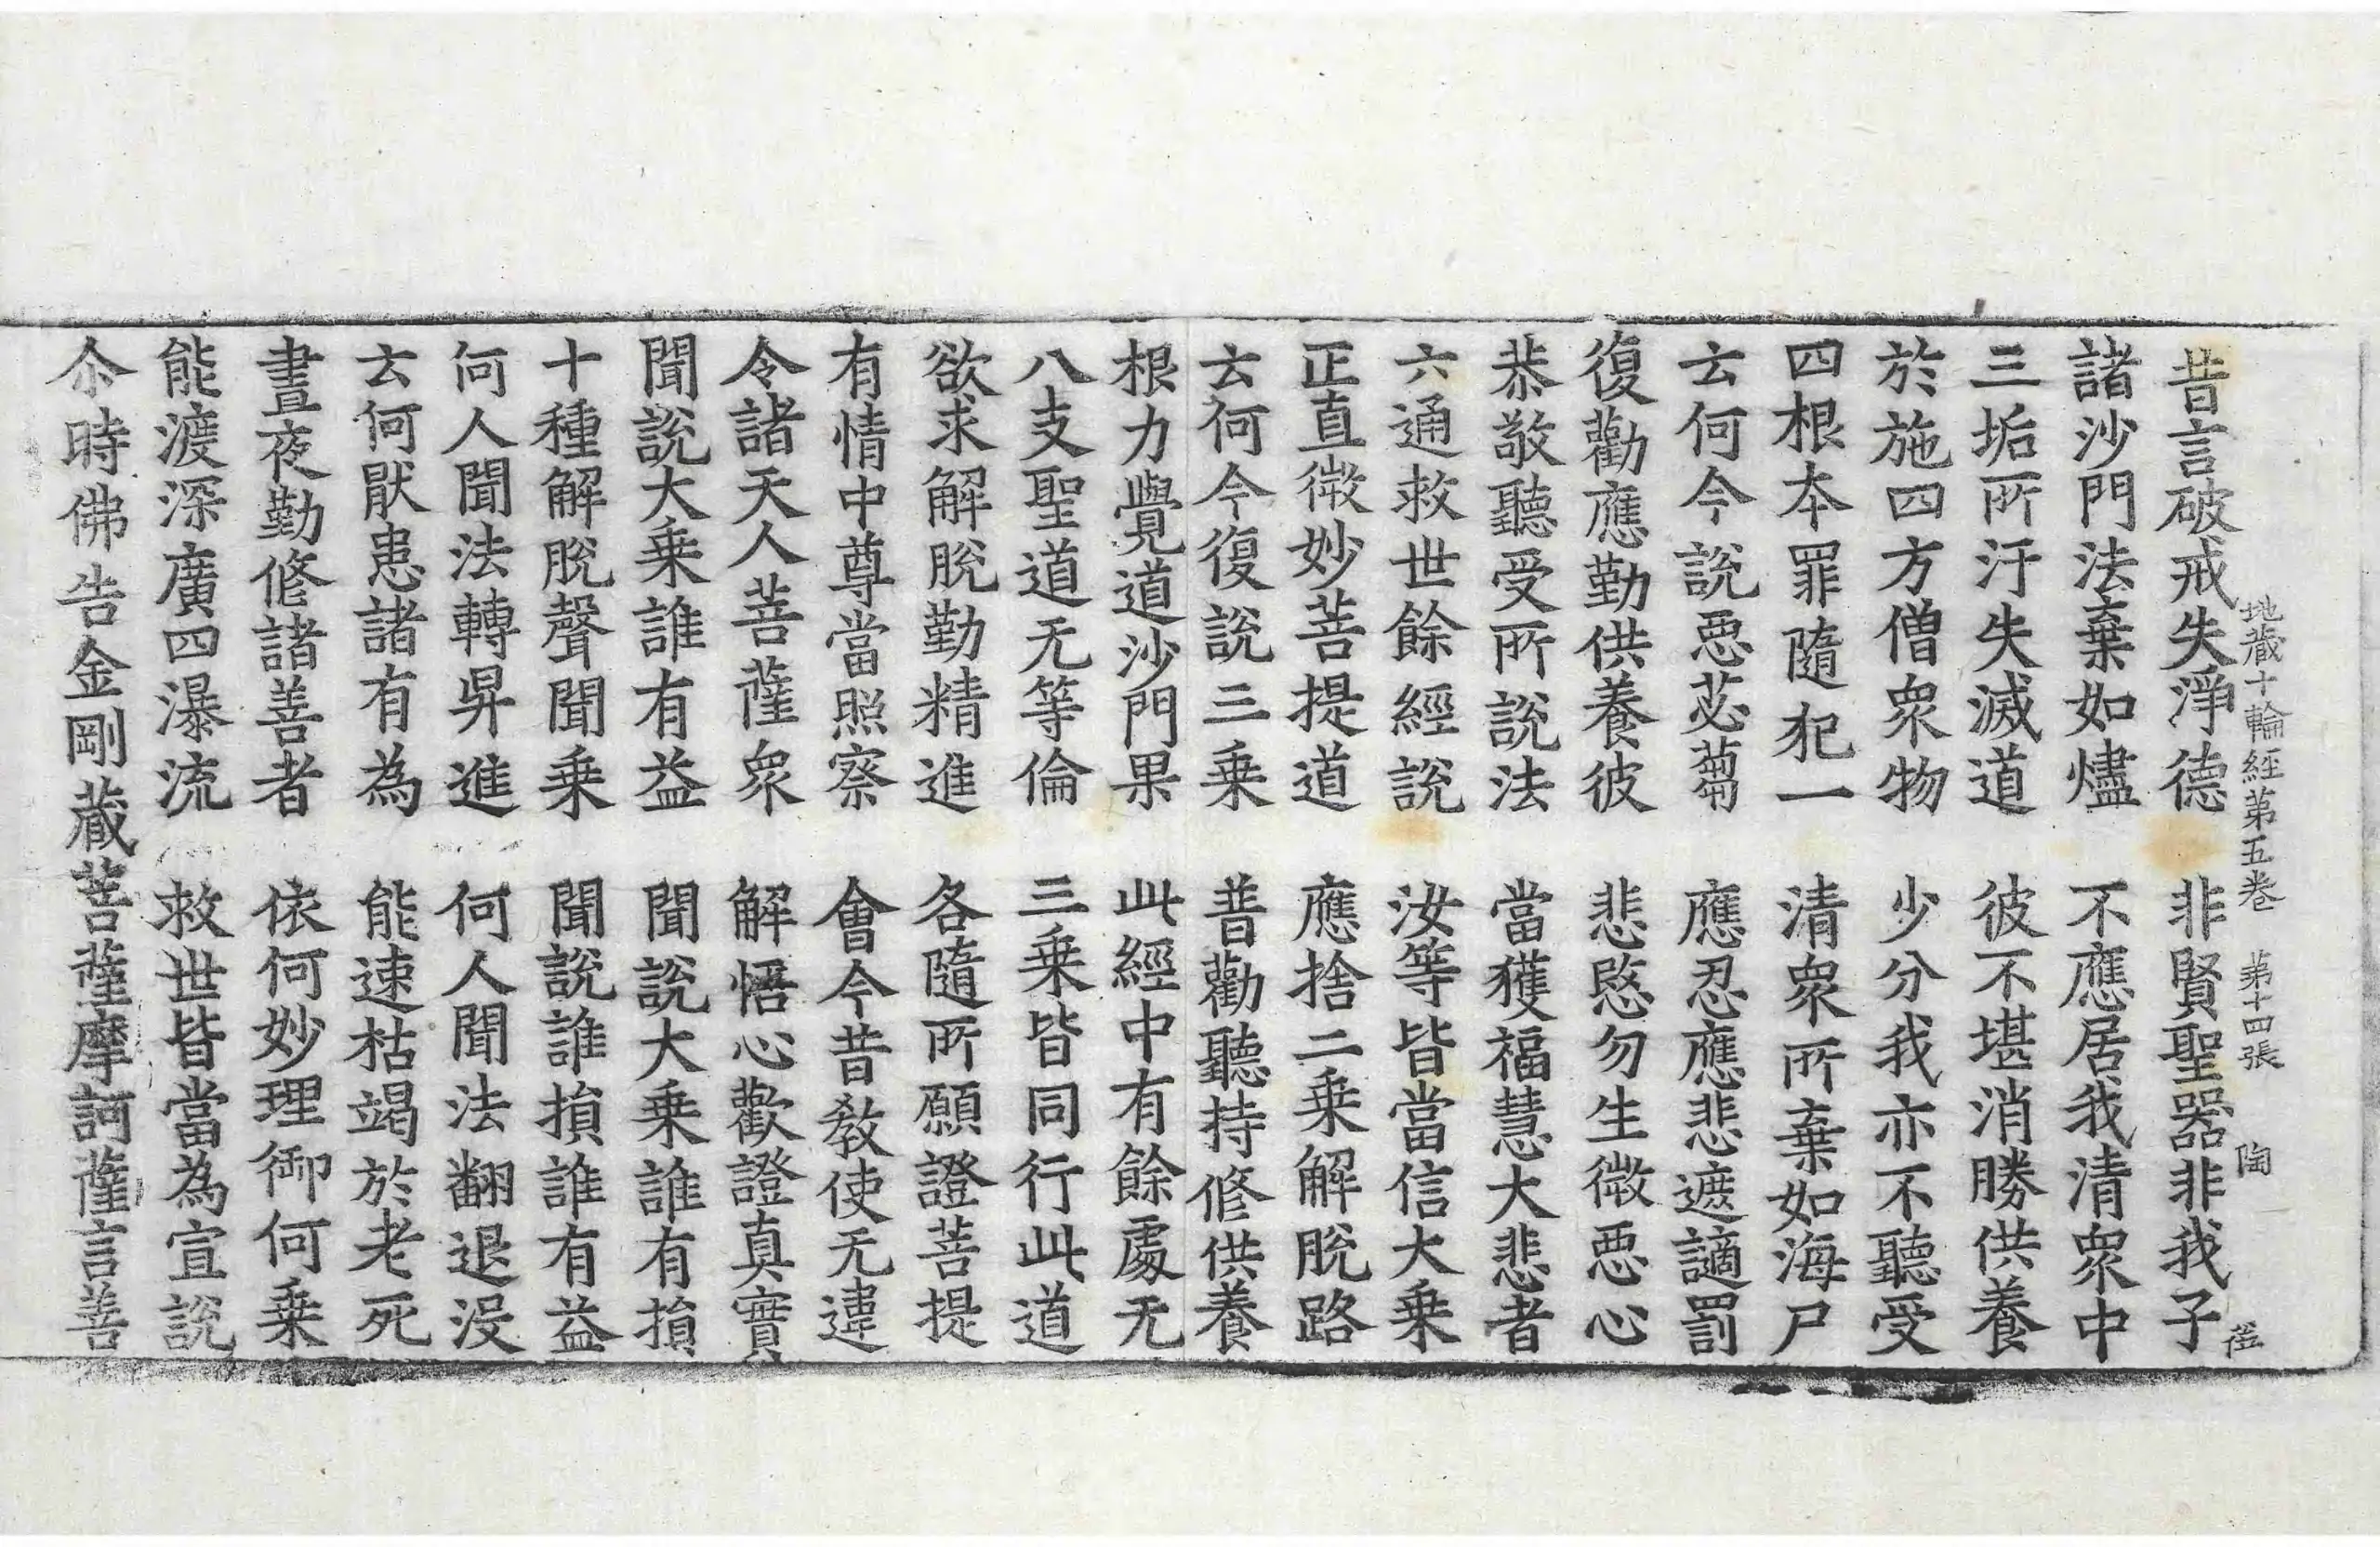 昔言破戒失淨德　非賢聖器非我子
地藏十輪經第五卷　第十四張　陶
諸沙門法棄如燼　不應居我清衆中
三垢所汙失滅道　彼不堪消勝供養
於施四方僧衆物　少分我亦不聽受
四根本罪隨犯一　清衆所棄如海尸
云何今說惡苾蒭　應忍應悲遮讁罰
復勸應勤供養彼　悲愍勿生微惡心
恭敬聽受所說法　當獲福慧大悲者
六通救世餘經說　汝等皆當信大乗
正直微妙菩提道　應捨二乗解脫路
云何今復說三乗　普勸聽持修供養
根力覺道沙門果　此經中有餘處无
八支聖道无等倫　三乗皆同行此道
欲求解脫勤精進　各隨所願證菩提
有情中尊當照察　會今昔教使无違
令諸天人菩薩衆　解悟心歡證真實
聞說大乗誰有益　聞說大乗誰有損
十種解脫聲聞乗　聞說誰損誰有益
何人聞法轉昇進　何人聞法翻退没
云何厭患諸有為　能速枯竭於老死
晝夜勤修諸善者　依何妙理御何乗
能渡深廣四瀑流　救世皆當為宣說
尒時佛告金剛藏菩薩摩訶薩言善